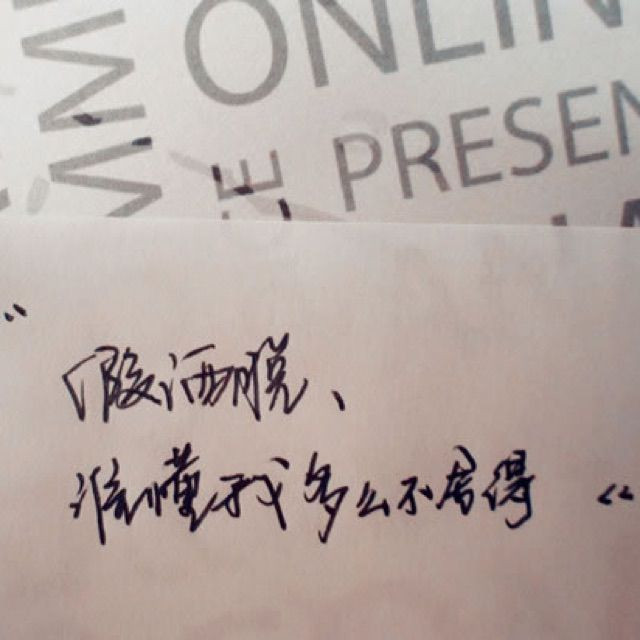 ONLIN
PRESEN
“
假洒脱、
谁懂我多么不舍得 “